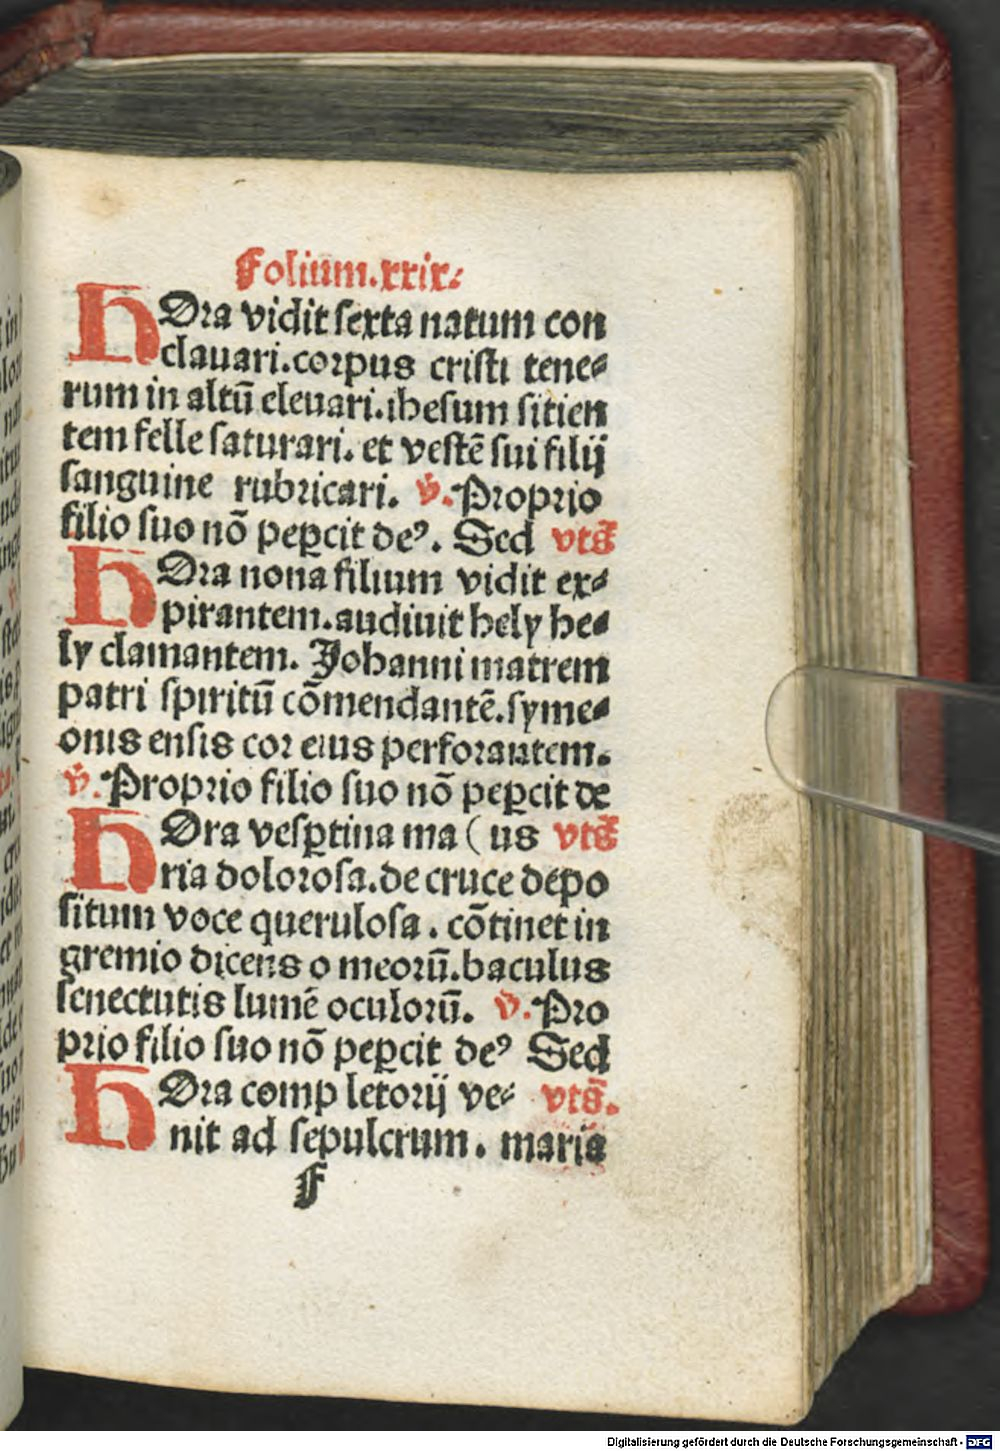 Folium.xxix.
HOra vidit sexta natum con
clauari.corpus cristi tene⸗
rum in altū eleuari.ihesum sitien
tem felle saturari. et vestē sui filij
sanguine rubricari. v̄. Proprio
filio suo nō peꝑcit deꝰ. Sed vts̄
HOra nona filium vidit ex⸗
pirantem.audiuit hely he⸗
ly clamantem. Johanni matrem
patri spiritū cōmendantē.syme⸗
onis ensis cor eius perforantem.
v̄. Proprio filio suo nō peꝑcit de
HOra vesꝑtina ma ( us vts̄
ria dolorosa.de cruce depo
situm voce querulosa. cōtinet in
gremio dicens o meorū.baculus
senectutis lumē oculorū. v̄. Pro
prio filio suo nō peꝑcit deꝰ Sed
HOra comp letorij ve⸗ vts̄.
nit ad sepulcrum. maria
F
Digitalisierung gefördert durch die Deutsche Forschungsgemeinschaft - DFG